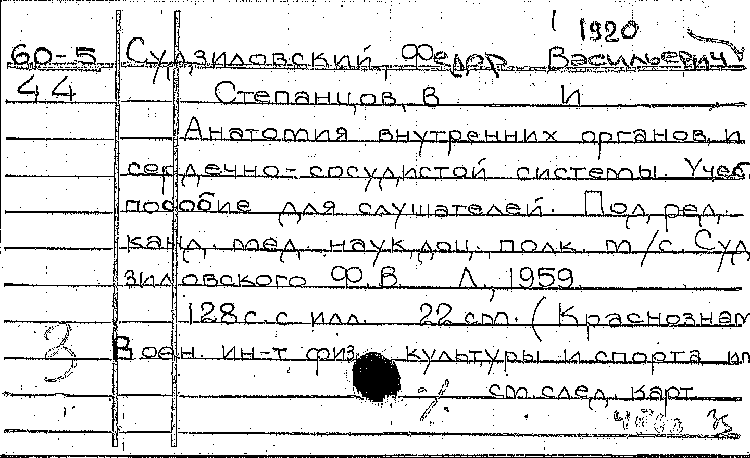 1920
60-5 Судзиловский, Федор Васильевич
44 Степанцов, В И
Анатомия внутренних органов и
сердечно-сосудистой системы. Учеб.
пособие для слушателей. Под ред.
канд. мед. наук доц. полк. м/с. Суд
зиловского Ф.В. Л., 1959.
128 с. с илл. 22 см. (Краснознам
3 Воен. ин-т физ. культуры и спорта им
см. след. карт